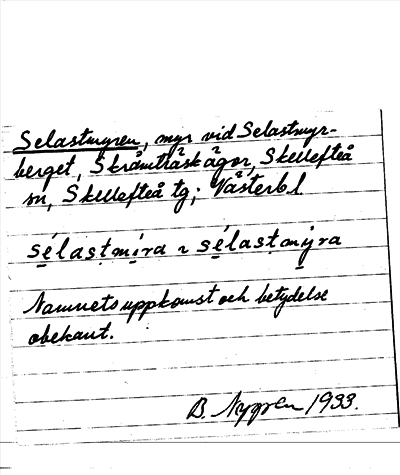 Selastmyren, myr vid Selastmyr-
berget, Skråmträsk ägor, Skellefteå
sn, Skellefteå tg; Västerb.l
sélastmíra ~ sélastmýra
Namnets uppkomst och betydelse
obekant.
B. Nygren 1933.